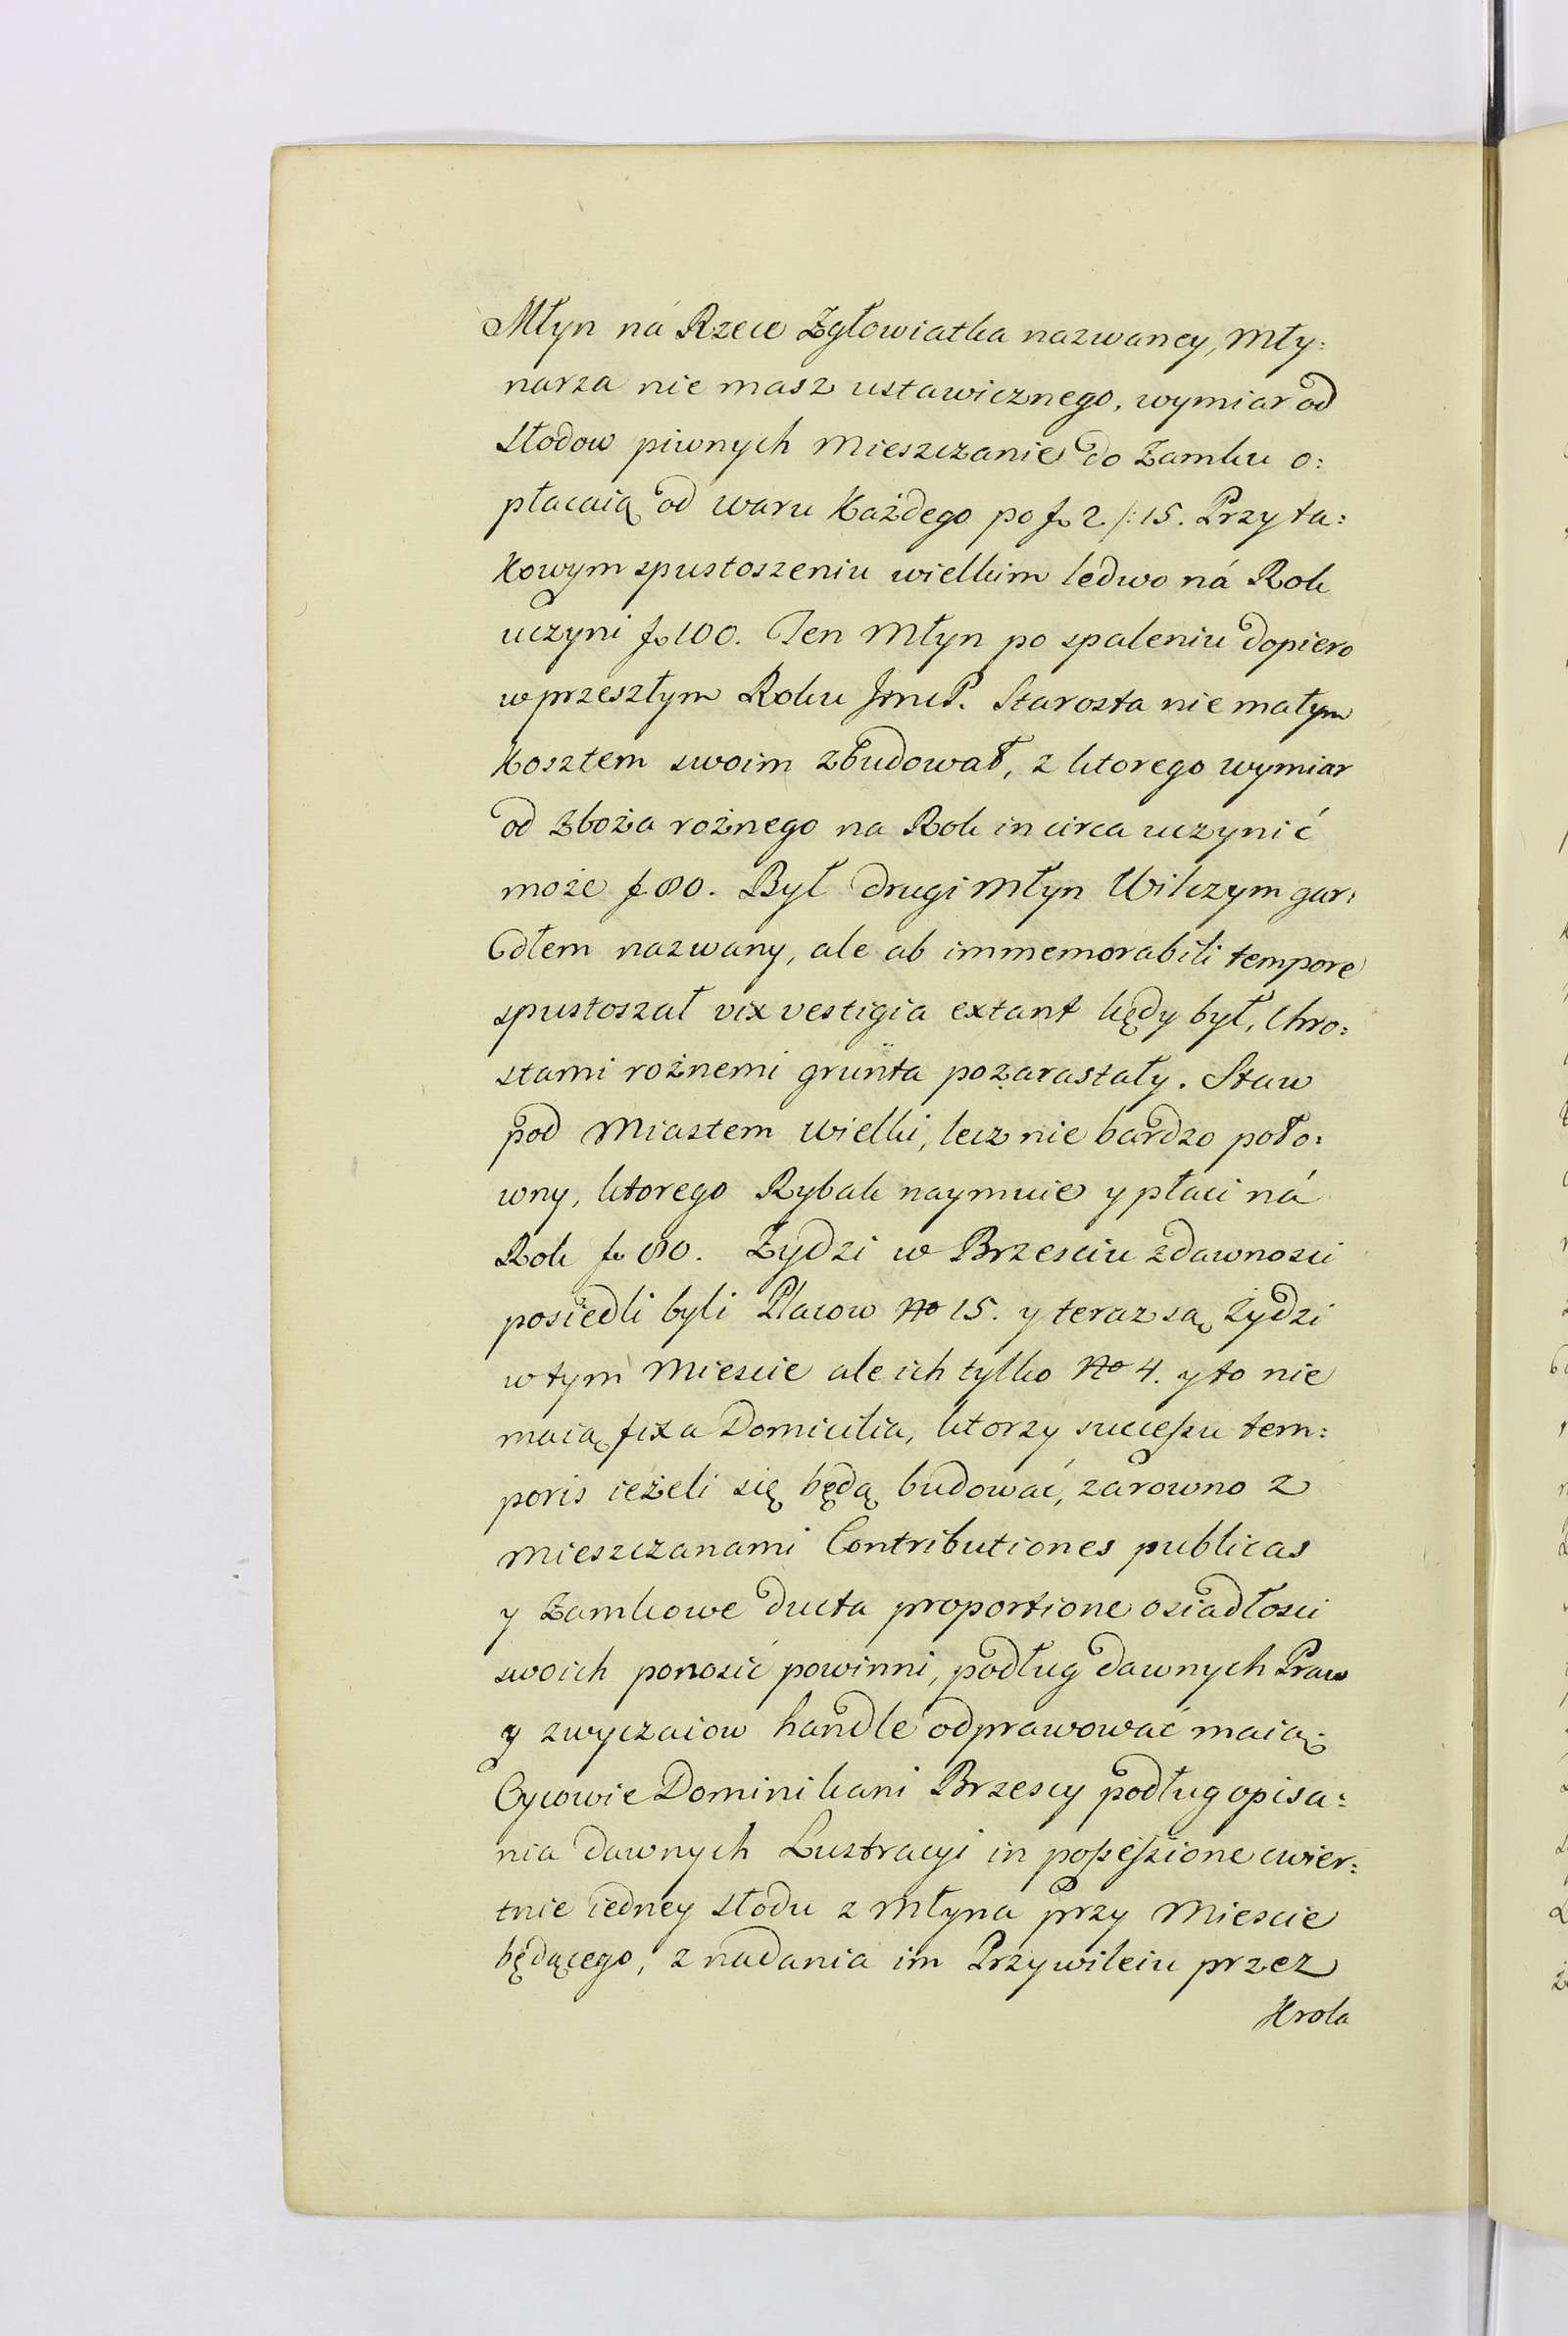 Młyn ná Rzece Zgłowiatka nazwaney, Mły:
narza nie masz ustawicznego, wymiar od
Słodow piwnych Mieszczanie do Zamku o:
płacaią od waru Każdego po f. 2 /: 15. Przy ta:
Kowym spustoszeniu wielkim ledwo ná Rok
uczyni f. 100. Ten Młyn po spaleniu dopiero
w przeszłym Roku JmcP. Starosta nie małym
Kosztem swoim zbudował, z ktorego wymiar
od Zboża rożnego na Rok in circa uczynić
może f. 80. Był drugi Młyn Wilczym gar:
dłem nazwany, ale ab immemorabili tempore
spustoszał vix vestigia extant kędy był, Chro:
stami rożnemi grunta pozarastały. Staw
pod Miastem Wielki, lecz nie bardzo poło:
wny, ktorego Rybak naymuie y płaci ná
Rok f. 80. Zydzi w Brzesciu zdawnosci
posiedli byli Placow No 15. y teraz są Żydzi
w tym Miescie ale ich tylko No 4. y to nie
maią fixa Domicilia, ktorzy successu tem:
poris ieżeli się będą budować, zarowno z
Mieszczanami Contributiones publicas
y Zamkowe ducta proportione osiadłosci
swoich ponosić powinni, podług dawnych Praw
y zwyczaiow handle odprawować maią.
Oycowie Dominikani Brzescy podług opisa:
nia dawnych Lustracyi in possessione cwier:
tnie iedney słodu z Młyna przy Miescie
będącego, z nadania im Przywileiu przez
Krola